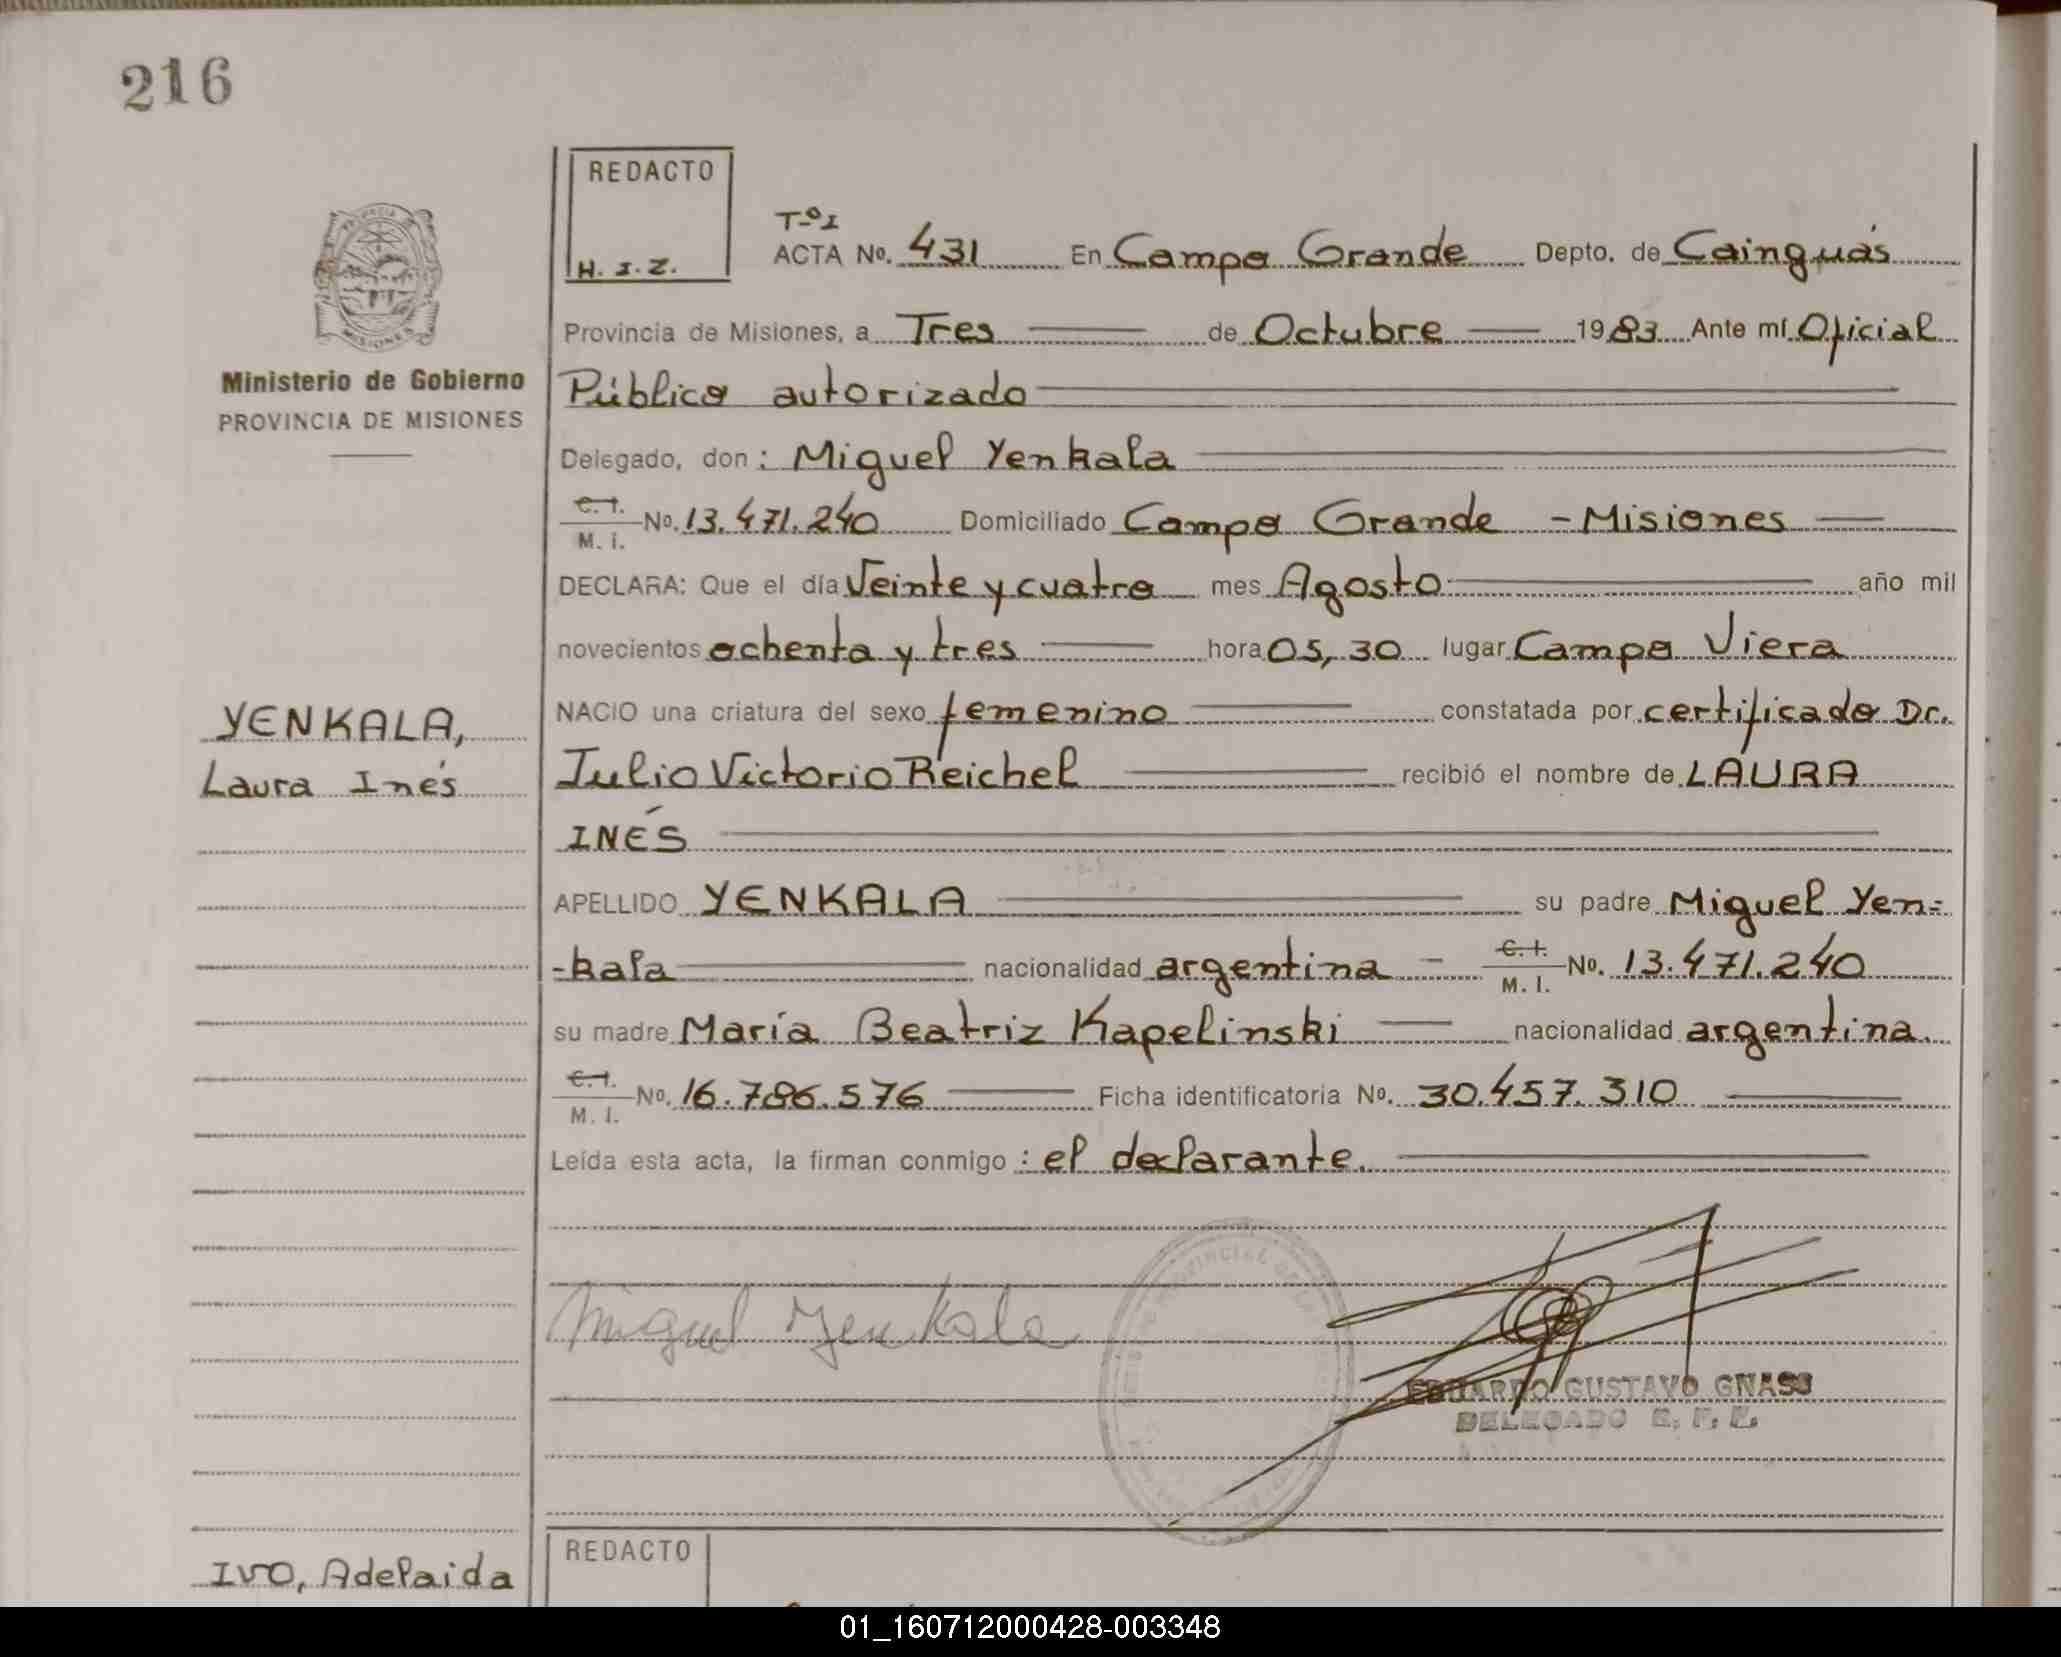 216
REDACTO
H. I. Z.
Tº I
ACTA No. 431 En Campo Grande Depto. de Cainguás
Provincia de Misiones, a Tres de Octubre 1983 Ante mí Oficial
Público autorizado
MISIONES
Ministerio de Gobierno
PROVINCIA DE MISIONES
Delegado, don: Miguel Yenkala
C. I.
M. I. No. 13.471.240 Domiciliado Campo Grande - Misiones
DECLARA: Que el día Veinte y cuatro mes Agosto año mil
novecientos ochenta y tres hora 05,30 lugar Campo Viera
YENKALA,
Laura Inés
NACIO una criatura del sexo femenino constatada por certificado Dr.
Julio Victorio Reichel recibió el nombre de LAURA
INÉS
APELLIDO YENKALA su padre Miguel Yen=
-kala nacionalidad argentina - C. I.
M. I. No. 13.471.240
su madre María Beatriz Kapelinski nacionalidad argentina.
C. I.
M. I. No. 16.786.576 Ficha identificatoria No. 30.457.310
Leída esta acta, la firman conmigo: el declarante.
Miguel Yenkala
EDUARDO GUSTAVO GNASS
DELEGADO
REDACTO
IVO, Adelaida
01_160712000428-003348